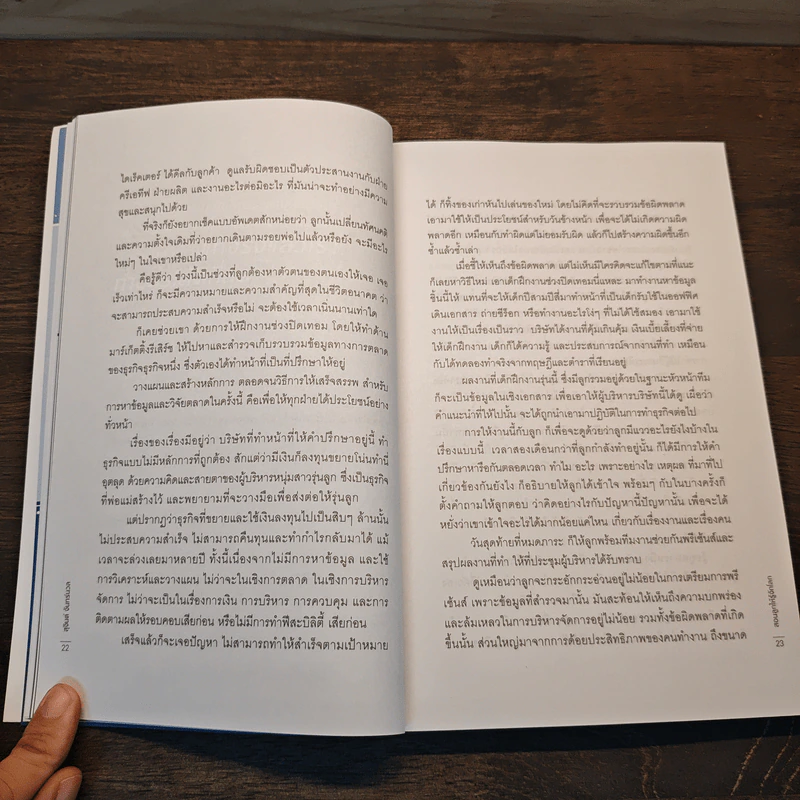 ไดเร็คเตอร์ ได้ดีลกับลูกค้า ดูแลรับผิดชอบเป็นตัวประสานงานกับฝ่าย
ครีเอทีฟ ฝ่ายผลิต และงานอะไรต่อมิอะไร ที่มันน่าจะทำอย่างมีความ
สุขและสนุกไปด้วย
ที่จริงก็ยังอยากเช็คแบบอัพเดตสักหน่อยว่า ลูกนั้นเปลี่ยนทัศนคติ
และความตั้งใจเดิมที่ว่าอยากเดินตามรอยพ่อไปแล้วหรือยัง จะมีอะไร
ใหม่ๆ ในใจเขาหรือเปล่า
คือรู้ดีว่า ช่วงนี้เป็นช่วงที่ลูกต้องหาตัวตนของตนเองให้เจอ เจอ
เร็วเท่าไหร่ ก็จะมีความหมายและความสำคัญที่สุดในชีวิตอนาคต ว่า
จะสามารถประสบความสำเร็จหรือไม่ จะต้องใช้เวลาเนิ่นนานเท่าใด
ก็เคยช่วยเขา ด้วยการให้ฝึกงานช่วงปิดเทอม โดยให้ทำด้าน
มาร์เก็ตติ้งรีเสิร์ช ให้ไปหาและสำรวจเก็บรวบรวมข้อมูลทางการตลาด
ของธุรกิจธุรกิจหนึ่ง ซึ่งตัวเองได้ทำหน้าที่เป็นที่ปรึกษาให้อยู่
วางแผนและสร้างหลักการ ตลอดจนวิธีการให้เสร็จสรรพ สำหรับ
การหาข้อมูลและวิจัยตลาดในครั้งนี้ คือเพื่อให้ทุกฝ่ายได้ประโยชน์อย่าง
ทั่วหน้า
เรื่องของเรื่องมีอยู่ว่า บริษัทที่ทำหน้าที่ให้คำปรึกษาอยู่นี้ ทำ
ธุรกิจแบบไม่มีหลักการที่ถูกต้อง สักแต่ว่ามีเงินก็ลงทุนขยายโน่นทำนี่
อุตลุด ด้วยความคิดและสายตาของผู้บริหารหนุ่มสาวรุ่นลูก ซึ่งเป็นธุรกิจ
ที่พ่อแม่สร้างไว้ และพยายามที่จะวางมือเพื่อส่งต่อให้รุ่นลูก
แต่ปรากฏว่าธุรกิจที่ขยายและใช้เงินลงทุนไปเป็นสิบๆ ล้านนั้น
ไม่ประสบความสำเร็จ ไม่สามารถคืนทุนและทำกำไรกลับมาได้ แม้
เวลาจะล่วงเลยมาหลายปี ทั้งนี้เนื่องจากไม่มีการหาข้อมูล และใช้
การวิเคราะห์และวางแผน ไม่ว่าจะในเชิงการตลาด ในเชิงการบริหาร
จัดการ ไม่ว่าจะเป็นในเรื่องการเงิน การบริหาร การควบคุม และการ
ติดตามผลให้รอบคอบเสียก่อน หรือไม่มีการทำฟีสะบิลิตี้ เสียก่อน
เสร็จแล้วก็จะเจอปัญหา ไม่สามารถทำให้สำเร็จตามเป้าหมาย
22
สุจินต์ จันทร์นวล
ได้ ก็ทิ้งของเก่าหันไปเล่นของใหม่ โดยไม่คิดที่จะรวบรวมข้อผิดพลาด
เอามาใช้ให้เป็นประโยชน์สำหรับวันข้างหน้า เพื่อจะได้ไม่เกิดความผิด
พลาดอีก เหมือนกับทำผิดแต่ไม่ยอมรับผิด แล้วก็ไปสร้างความผิดขึ้นอีก
ซ้ำแล้วซ้ำเล่า
เมื่อชี้ให้เห็นถึงข้อผิดพลาด แต่ไม่เห็นมีใครคิดจะแก้ไขตามที่แนะ
ก็เลยหาวิธีใหม่ เอาเด็กฝึกงานช่วงปิดเทอมนี่แหละ มาทำงานหาข้อมูล
ชิ้นนี้ให้ แทนที่จะให้เด็กปีสามปีสี่มาทำหน้าที่เป็นเด็กรับใช้ในออฟฟิศ
เดินเอกสาร ถ่ายซีร็อก หรือทำงานอะไรโง่ๆ ที่ไม่ได้ใช้สมอง เอามาใช้
งานให้เป็นเรื่องเป็นราว บริษัทได้งานที่คุ้มเกินคุ้ม เงินเบี้ยเลี้ยงที่จ่าย
ให้เด็กฝึกงาน เด็กก็ได้ความรู้ และประสบการณ์จากงานที่ทำ เหมือน
กับได้ทดลองทำจริงจากทฤษฎีและตำราที่เรียนอยู่
ผลงานที่เด็กฝึกงานรุ่นนี้ ซึ่งมีลูกรวมอยู่ด้วยในฐานะหัวหน้าทีม
ก็จะเป็นข้อมูลในเชิงเอกสาร เพื่อเอาให้ผู้บริหารบริษัทนี้ได้ดู เผื่อว่า
คำแนะนำที่ให้ไปนั้น จะได้ถูกนำเอามาปฏิบัติในการทำธุรกิจต่อไป
การให้งานนี้กับลูก ก็เพื่อจะดูด้วยว่าลูกมีแววอะไรยังไงบ้างใน
เรื่องแบบนี้ เวลาสองเดือนกว่าที่ลูกกำลังทำอยู่นั้น ก็ได้มีการให้คำ
ปรึกษาหารือกันตลอดเวลา ทำไม อะไร เพราะอย่างไร เหตุผล ที่มาที่ไป
เกี่ยวข้องกันยังไง ก็อธิบายให้ลูกได้เข้าใจ พร้อมๆ กับในบางครั้งก็
ตั้งคำถามให้ลูกตอบ ว่าคิดอย่างไรกับปัญหานี้ปัญหานั้น เพื่อจะได้
หยั่งว่าเขาเข้าใจอะไรได้มากน้อยแค่ไหน เกี่ยวกับเรื่องงานและเรื่องคน
วันสุดท้ายที่หมดภาระ ก็ให้ลูกพร้อมทีมงานช่วยกันพรีเซ้นส์และ
สรุปผลงานที่ทำ ให้ที่ประชุมผู้บริหารได้รับทราบ
ดูเหมือนว่าลูกจะกระอักกระอ่วนอยู่ไม่น้อยในการเตรียมการพรี
เซ้นส์ เพราะข้อมูลที่สำรวจมานั้น มันสะท้อนให้เห็นถึงความบกพร่อง
และล้มเหลวในการบริหารจัดการอยู่ไม่น้อย รวมทั้งข้อผิดพลาดที่เกิด
ขึ้นนั้น ส่วนใหญ่มาจากการด้อยประสิทธิภาพของคนทำงาน ถึงขนาด
สอนลูกให้รู้จักโลก
23